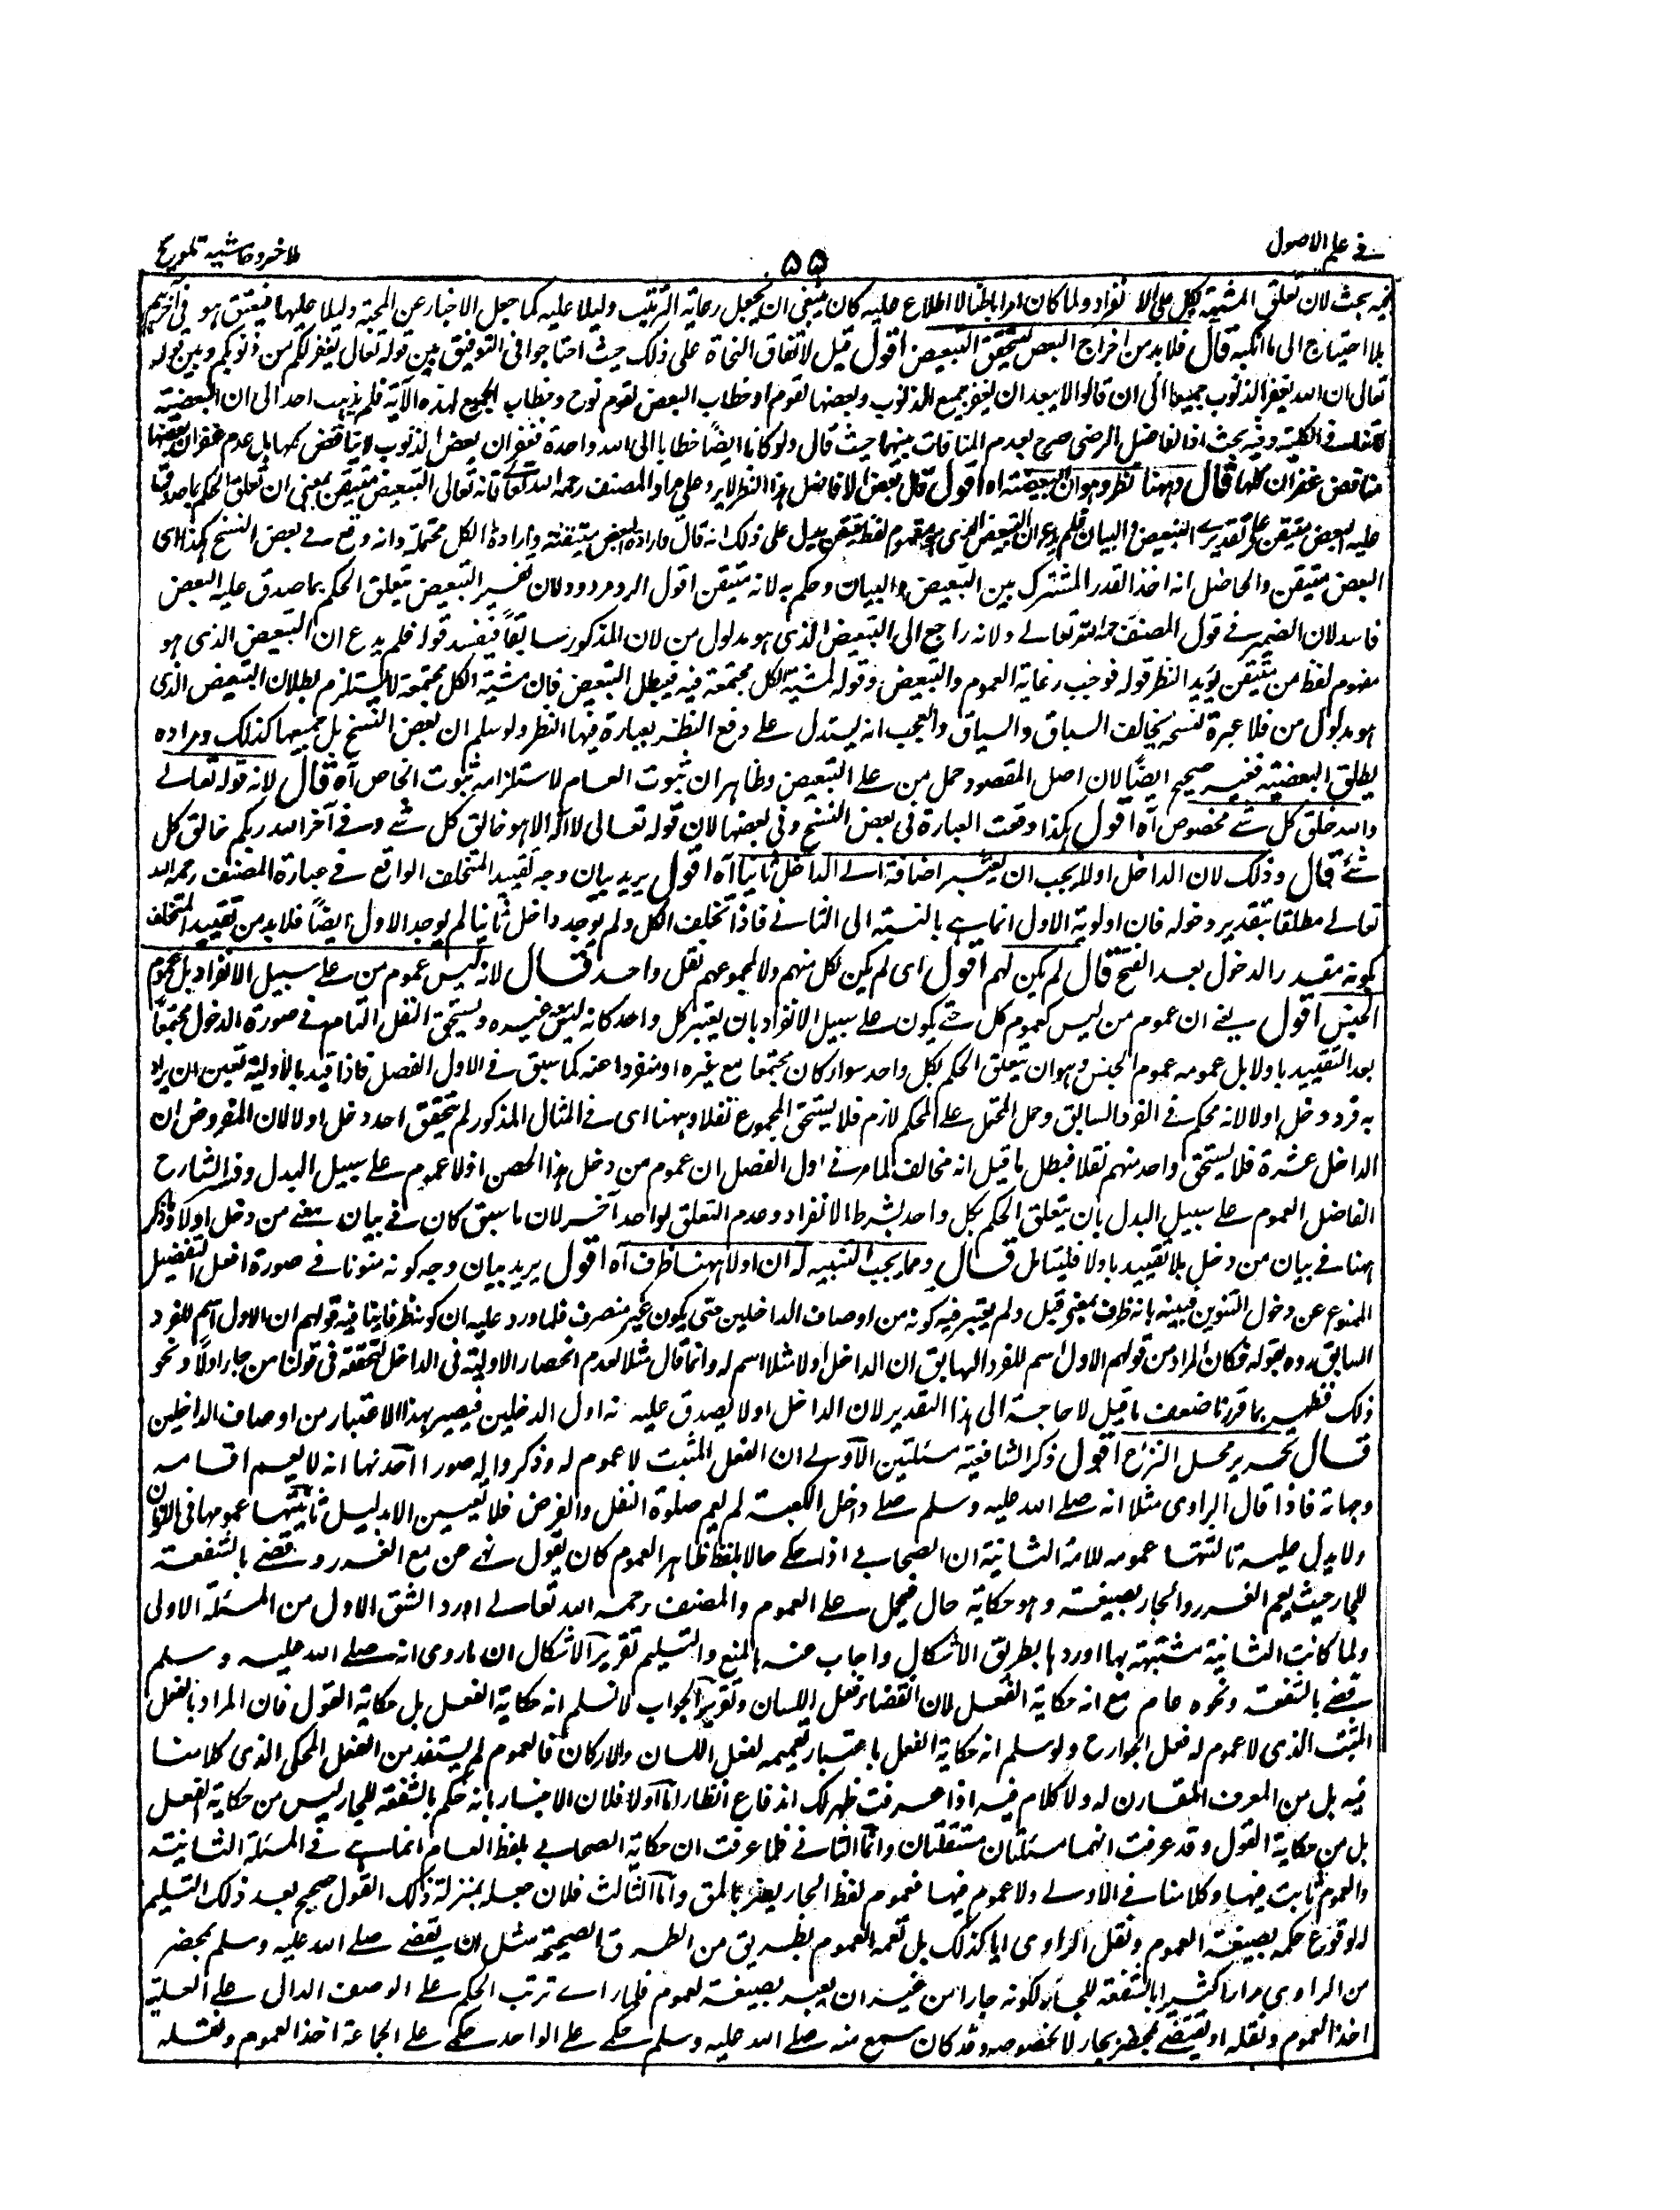 في علم الاصول
٥٥
ملا خسرو حاشية تلويح
فيه بحث لان تعلق المشية بكل على الانفراد ولما كان امرا باطنا لا اطلاع عليه كان ينبغي ان يجعل رعاية الترتيب دليلا عليه كما جعل الاخبار عن المحبة دليلا عليها فيعتق هو في آخرهم
بلا احتياج الى ما ارتكبه قال فلا بد من اخراج البعض ليتحقق التبعيض اقول قيل لاتفاق النحاة على ذلك حيث احتاجوا في التوفيق بين قوله تعالى يغفر لكم من ذنوبكم وبين قوله
تعالى ان الله يغفر الذنوب جميعا الى ان قالوا لا يبعد ان يغفر جميع الذنوب لقوم وبعضها لقوم او خطاب البعض لقوم نوح وخطاب الجميع لهذه الآية فلم يذهب احد الى ان البعضية
لا تنافي الكلية وفيه بحث اذ الفاضل الرضي صرح بعدم المنافات بينهما حيث قال ولو كانا ايضا خطابا الى امة واحدة فغفران بعض الذنوب لا يناقض كلها بل عدم غفران بعضها
مناقض غفران كلها قال وههنا نظر وهو ان البعضية اه اقول قال بعض الافاضل هذا النظر لا يرد على مراد المصنف رحمه الله تعالى فانه تعالى التبعيض متيقن بمعنى ان تعلق الحكم بما صدق
عليه البعض متيقن على تقديري التبعيض والبيان فلم يدع ان التبعيض الذي هو مفهوم لفظ متيقن يدل على ذلك انه قال فارادة البعض متيقنة وارادة الكل محتملة وانه وقع في بعض النسخ هكذا اي
البعض متيقن والحاصل انه اخذ القدر المشترك بين التبعيض والبيان وحكم به لانه متيقن اقول الرد مردود لان تفسير التبعيض بتعلق الحكم بما صدق عليه البعض
فاسد لان الضمير في قول المصنف رحمه الله تعالى ولانه راجع الى التبعيض الذي هو مدلول من لان المذكور سابقاً فيفسد قوله فلم يدع ان التبعيض الذي هو
مفهوم لفظ من متيقن يؤيد النظر قوله فوجب رعاية العموم والتبعيض وقوله لمشية الكل مجتمعة فيه فيبطل التبعيض فان مشية الكل مجتمعة لا يستلزم بطلان التبعيض الذي
هو مدلول من فلا عبرة لنسخة يخالف السباق والسياق والعجب انه يستدل على دفع النظر بعبارة فيها النظر ولو سلم ان بعض النسخ بل جميعها كذلك ومراده
يطلق البعضية فغير صحيح ايضًا لان اصل المقصود حمل من على التبعيض وظاهر ان ثبوت العام لا استلزام ثبوت الخاص آه قال لانه قوله تعالى
والله خلق كل شئ مخصوص آه اقول هكذا وقعت العبارة في بعض النسخ وفي بعضها لان قوله تعالى لا اله الا هو خالق كل شئ وفي آخر الله ربكم خالق كل
شئ قال وذلك لان الداخل اولا يجب ان يعتبر اضافة الى الداخل ثانيا آه اقول يريد بيان وجه تقييد المتخلف الواقع في عبارة المصنف رحمه الله
تعالى مطلقا بتقدير دخوله فان اولوية الاول انما هي بالنسبة الى الثاني فاذا تخلف الكل ولم يوجد داخل ثانيا لم يوجد الاول ايضًا فلا بد من تقييد المتخلف
بكونه مقدر الدخول بعد الفتح قال لم يكن لهم اقول اي لم يكن لكل منهم ولا لمجموعهم نفل واحد قال لانه ليس عموم من على سبيل الانفراد بل عموم
الجنس اقول يعني ان عموم من ليس كعموم كل حتى يكون على سبيل الانفراد بان يعتبر كل واحد كانه ليس غيره ويستحق النفل التام في صورة الدخول مجتمعاً
بعد التقييد باولا بل عمومه عموم الجنس وهو ان يتعلق الحكم بكل واحد سواء كان مجتمعا مع غيره او منفردا عنه كما سبق في الاول الفصل فاذا قيد بالاولية تعين ان يراد
به فرد دخل اولا لانه محكم في الفرد السابق وحمل المحتمل على المحكم لازم فلا يستحق المجموع نفلا وههنا اي في المثال المذكور لم يتحقق احد دخل اولا لان المفروض ان
الداخل عشرة فلا يستحق واحد منهم نفلا فبطل ما قيل انه مخالف لما مر في اول الفصل ان عموم من دخل هذا الحصن اولا عموم على سبيل البدل وفسر الشارح
الفاضل العموم على سبيل البدل بان يتعلق الحكم بكل واحد بشرط الانفراد وعدم التعلق لواحد آخر لان ما سبق كان في بيان معنى من دخل اولا وما ذكر
ههنا في بيان من دخل بلا تقييد باولا فليتامل قال ومما يجب التنبيه له ان اولا ههنا ظرف آه اقول يريد بيان وجه كونه منونا في صورة افعل التفضيل
الممنوع عن دخول التنوين فبينه بانه ظرف بمعنى قبل ولم يعتبر فيه كونه من اوصاف الداخلين حتى يكون غير منصرف فلما ورد عليه ان كونه ظرفا ينافيه قولهم ان الاول اسم للفرد
السابق رده بقوله فكان المراد من قولهم الاول اسم للفرد السابق ان الداخل اولا مثلا اسم له وانما قال مثلا لعدم انحصار الاولية في الداخل لتحققه في قولنا من جاء اولا ونحو
ذلك فظهر بما قررنا ضعف ما قيل لا حاجة الى هذا التقدير لان الداخل اولا يصدق عليه انه اول الداخلين فيصير بهذا الاعتبار من اوصاف الداخلين
قال تحرير محل النزاع اقول ذكر الشافعية مسئلتين الاولى ان الفعل المثبت لا عموم له وذكروا له صورا احدها انه لا يعم اقسامه
وجهاته فاذا قال الراوي مثلا انه صلى الله عليه وسلم صلى داخل الكعبة لم يعم صلوة النفل والفرض فلا تعيين الا بدليل ثانيتها عمومها في الازمان
ولا يدل عليه ثالثتها عمومه للامة الثانية ان الصحابي اذا حكى حالا بلفظ ظاهر العموم كان يقول نهى عن بيع الغرر وقضى بالشفعة
للجار حيث يعم الغرر والجار بصيغته وهو حكاية حال فيحمل على العموم والمصنف رحمه الله تعالى اورد الشق الاول من المسئلة الاولى
ولما كانت الثانية مشتبهة بها اوردها بطريق الاشكال واجاب عنه بالمنع والتسليم تقرير الاشكال ان ما روي انه صلى الله عليه وسلم
قضى بالشفعة ونحوه عام مع انه حكاية الفعل لان القضاء فعل اللسان وتقرير الجواب لا نسلم انه حكاية الفعل بل حكاية القول فان المراد بالفعل
المثبت الذي لا عموم له فعل الجوارح ولو سلم انه حكاية الفعل باعتبار تعميمه لفعل اللسان والاركان فالعموم لم يستفد من الفعل المحكي الذي كلامنا
فيه بل من المعرف المقارن له ولا كلام فيه اذا عرفت ظهر لك اندفاع انظار اما اولا فلان الاخبار بانه حكم بالشفعة للجار ليس من حكاية الفعل
بل من حكاية القول وقد عرفت انهما مسئلتان مستقلتان واما الثاني فلما عرفت ان حكاية الصحابي بلفظ العام انما هي في المسئلة الثانية
والعموم ثابت فيها وكلامنا في الاولى ولا عموم فيها فعموم لفظ الجار يضر بالحق واما الثالث فلان جعله بمنزلة ذلك القول صحيح بعد ذلك التسليم
له لوقوع حكمه بصيغة العموم ونقل الراوي ايا كذلك بل نعمه العموم بطريق من الطرق الصحيحة مثل ان يقضي صلى الله عليه وسلم بمحضر
من الراوي مرارا كثيرا بالشفعة للجار لكونه جارا من غير ان يعبر بصيغة لعموم فلما راى ترتب الحكم على الوصف الدال على العلية
اخذ العموم ونقله او يقضي بمحضره بجار لا بخصوصه وقد كان سمع منه صلى الله عليه وسلم حكمي على الواحد حكمي على الجماعة اخذ العموم ونقله